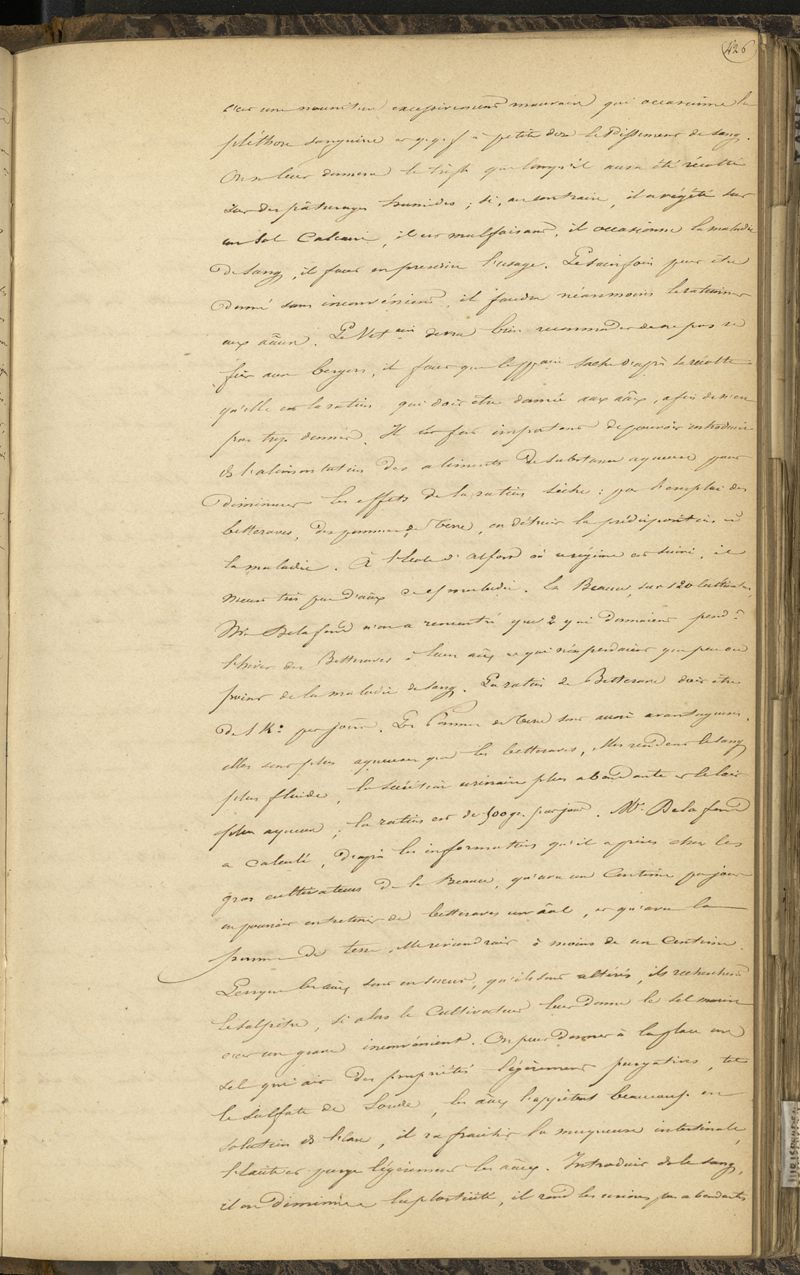 426
c'est une nourriture excessivement mauvaise qui occasionne la
pléthore sanguine et à petite dose le Pissement de sang.
On ne leur donnera le trèfle que lorsqu'il aura été récolté
sur des pâturages humides ; si, au contraire, il a végété sur
un sol Calcaire, il est malfaisant, il occasionne la maladie
de sang, il faut en proscrire l'usage. Le sainfoin peut être
donné sans inconvénient, il faudra néanmoins le rationner
aux aâux. Le Vétre devra bien recommander de ne pas se
fier aux bergers, il faut que le ppre sache d'après la récolte
qu'elle est la ration qui doit être donnée aux aâux, afin de n'en
pas trop donner. Il est fort important de pouvoir introduire
ds l'alimentation des aliments de substance aqueuse pour
diminuer les effets de la ration sèche : par l'emploi des
betteraves, des pommes de Terre, on détruit la prédisposition à
la maladie. À l'école d'Alfort où ce régime est suivi, il
meurt très peu d'aâux de cette maladie. En Beauce, sur 120 cultivateurs
Mr Delafond n'en a rencontré que 2 qui donnaient pendt
l'hiver des Betteraves à leurs aâux et qui n'en perdaient que peu ou
point de la maladie de sang. La ration de Betterave doit être
de 1 Ko par jour. Les Pommes de Terre sont aussi avantageuses,
elles sont plus aqueuses que les betteraves, elles rendent le sang
plus fluide, la sécrétion urinaire plus abondante et le lait
plus aqueux ; la ration est de 500 gr. par jour. Mr Delafond
a calculé, d'après les informations qu'il a prises chez les
gros cultivateurs de la Beauce, qu'avec un Centime par jour
on pouvait entretenir de betteraves un âal, et qu'avec la
pomme de terre, elle reviendrait à moins de un Centime.
Lorsque les aâux sont en sueur, qu'ils sont altérés, ils recherchent
le salpêtre, si alors le Cultivateur leur donne le sel marin
c'est un grave inconvénient. On peut donner à la place un
sel qui ait des propriétés légèrement purgatives, tel
le sulfate de Soude, les aâux l'appètent beaucoup en
solution ds l'eau, il rafraichit la muqueuse intestinale,
et purge légèrement les aâux. Introduit ds le sang,
il en diminue la plasticité, il rend les urines plus abondantes